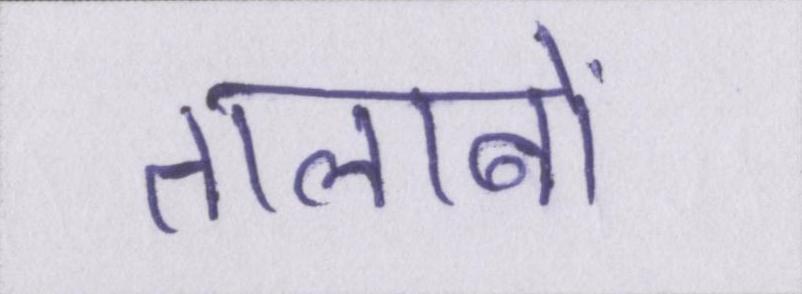 तालाबों